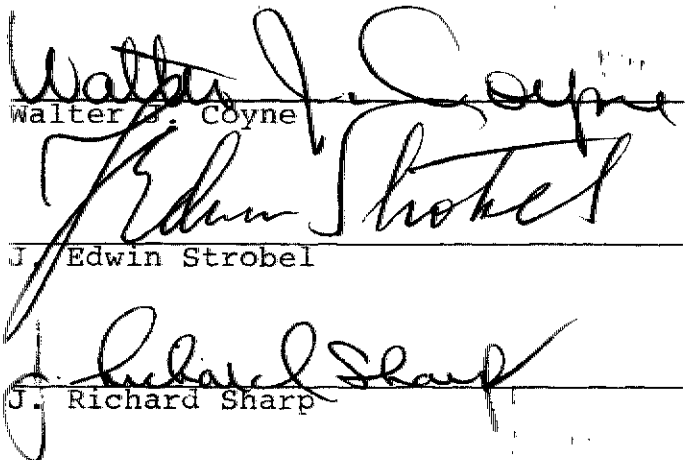 Walter J. Coyne
Walter J. Coyne
J. Edwin Strobel
J. Edwin Strobel
J. Richard Sharp
J. Richard Sharp